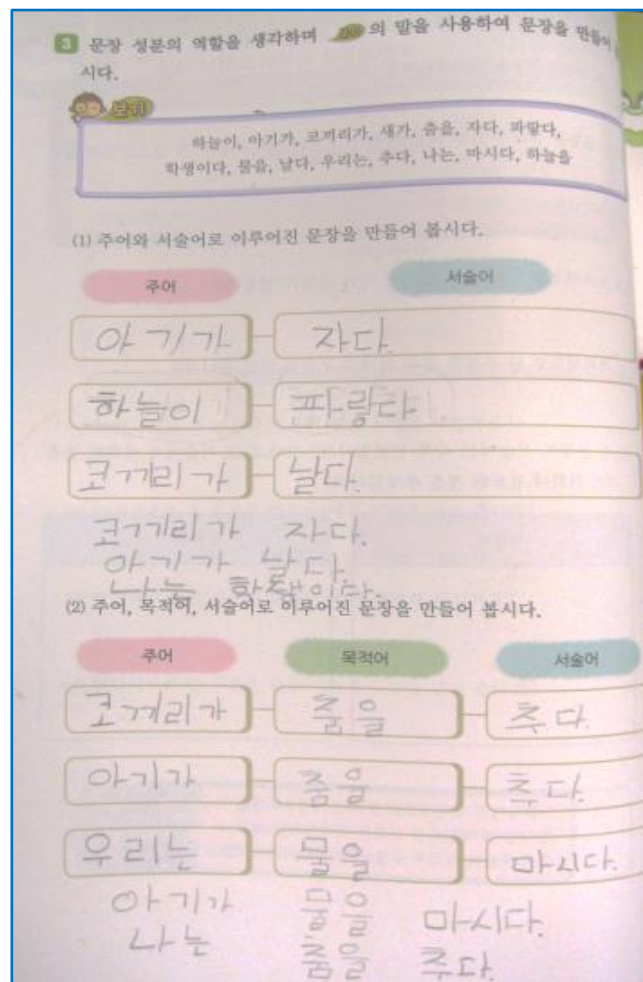 3 문장 성분의 역할을 생각하며 보기 의 말을 사용하여 문장을 만들어
시다.
보기
하늘이, 아기가, 코끼리가, 새가, 춤을, 자다, 파랗다,
학생이다, 물을, 날다, 우리는, 추다, 나는, 마시다, 하늘을
(1) 주어와 서술어로 이루어진 문장을 만들어 봅시다.
주어 서술어
아기가 자다.
하늘이 파랗다.
코끼리가 날다.
코끼리가 자다.
아기가 날다.
나는 학생이다.
(2) 주어, 목적어, 서술어로 이루어진 문장을 만들어 봅시다.
주어 목적어 서술어
코끼리가 춤을 추다.
아기가 춤을 추다.
우리는 물을 마시다.
아기가 물을 마시다.
나는 춤을 추다.